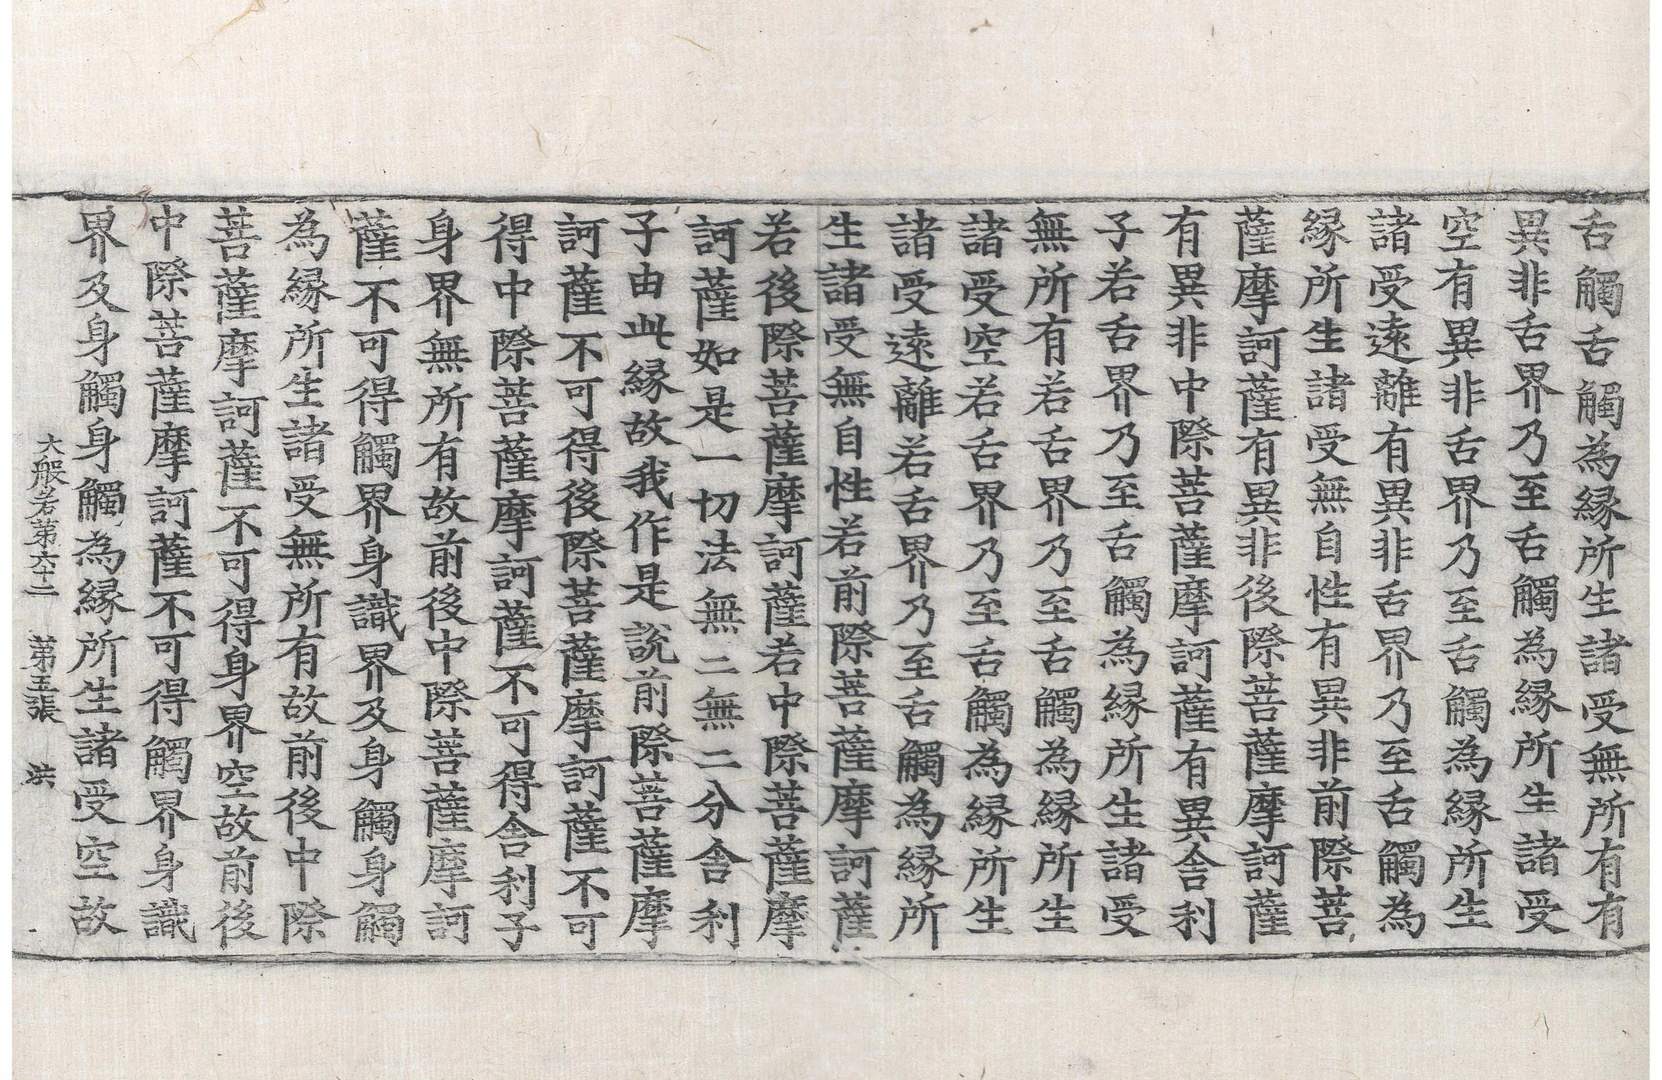 舌觸舌觸為縁所生諸受無所有有
異非舌界乃至舌觸為縁所生諸受
空有異非舌界乃至舌觸為縁所生
諸受遠離有異非舌界乃至舌觸為
縁所生諸受無自性有異非前際菩
薩摩訶薩有異非後際菩薩摩訶薩
有異非中際菩薩摩訶薩有異舎利
子若舌界乃至舌觸為縁所生諸受
無所有若舌界乃至舌觸為縁所生
諸受空若舌界乃至舌觸為縁所生
諸受遠離若舌界乃至舌觸為縁所
生諸受無自性若前際菩薩摩訶薩
若後際菩薩摩訶薩若中際菩薩摩
訶薩如是一切法無二無二分舎利
子由此縁故我作是說前際菩薩摩
訶薩不可得後際菩薩摩訶薩不可
得中際菩薩摩訶薩不可得舎利子
身界無所有故前後中際菩薩摩訶
薩不可得觸界身識界及身觸身觸
為縁所生諸受無所有故前後中際
菩薩摩訶薩不可得身界空故前後
中際菩薩摩訶薩不可得觸界身識
界及身觸身觸為縁所生諸受空故
大般若第六十二 第五張 洪